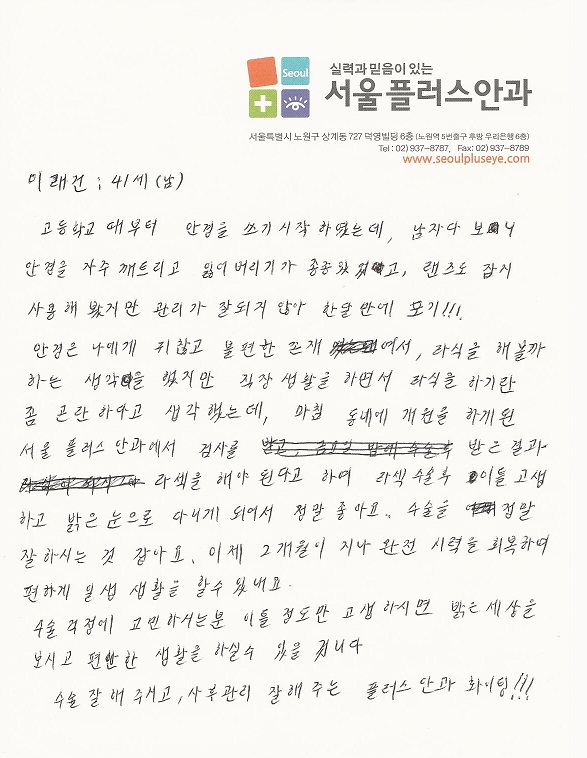 Seoul
실력과 믿음이 있는
서울플러스안과
서울특별시 노원구 상계동 727 덕영빌딩 6층 (노원역 5번출구 후방 우리은행 6층)
Tel : 02) 937-8787, Fax: 02) 937-8789
www.seoulpluseye.com
이래건 : 41세 (남)
고등학교 때부터 안경을 쓰기 시작 하였는데, 남자다 보니
안경을 자주 깨트리고 잃어버리기가 종종 있었고, 랜즈도 잠시
사용해 봤지만 관리가 잘되지 않아 한달만에 포기!!!
안경은 나에게 귀찮고 불편한 존재 여서, 라식을 해볼까
하는 생각을 했지만 직장생활을 하면서 라식을 하기란
좀 곤란하다고 생각했는데, 마침 동내에 개원을 하게된
서울 플러스 안과에서 검사를 받은 결과
라섹을 해야 된다고 하여 라섹수술후 이틀 고생
하고 밝은 눈으로 다니게 되어서 정말 좋아요. 수술을 정말
잘하시는 것 같아요. 이제 2개월이 지나 완전 시력을 회복하여
편하게 일생 생활을 할수 있내요.
수술 걱정에 고민하시는분 이틀 정도만 고생하시면 밝은 세상을
보시고 편안한 생활을 하실수 있을 겁니다
수술 잘해 주시고, 사후관리 잘해 주는 플러스 안과 화이팅!!!